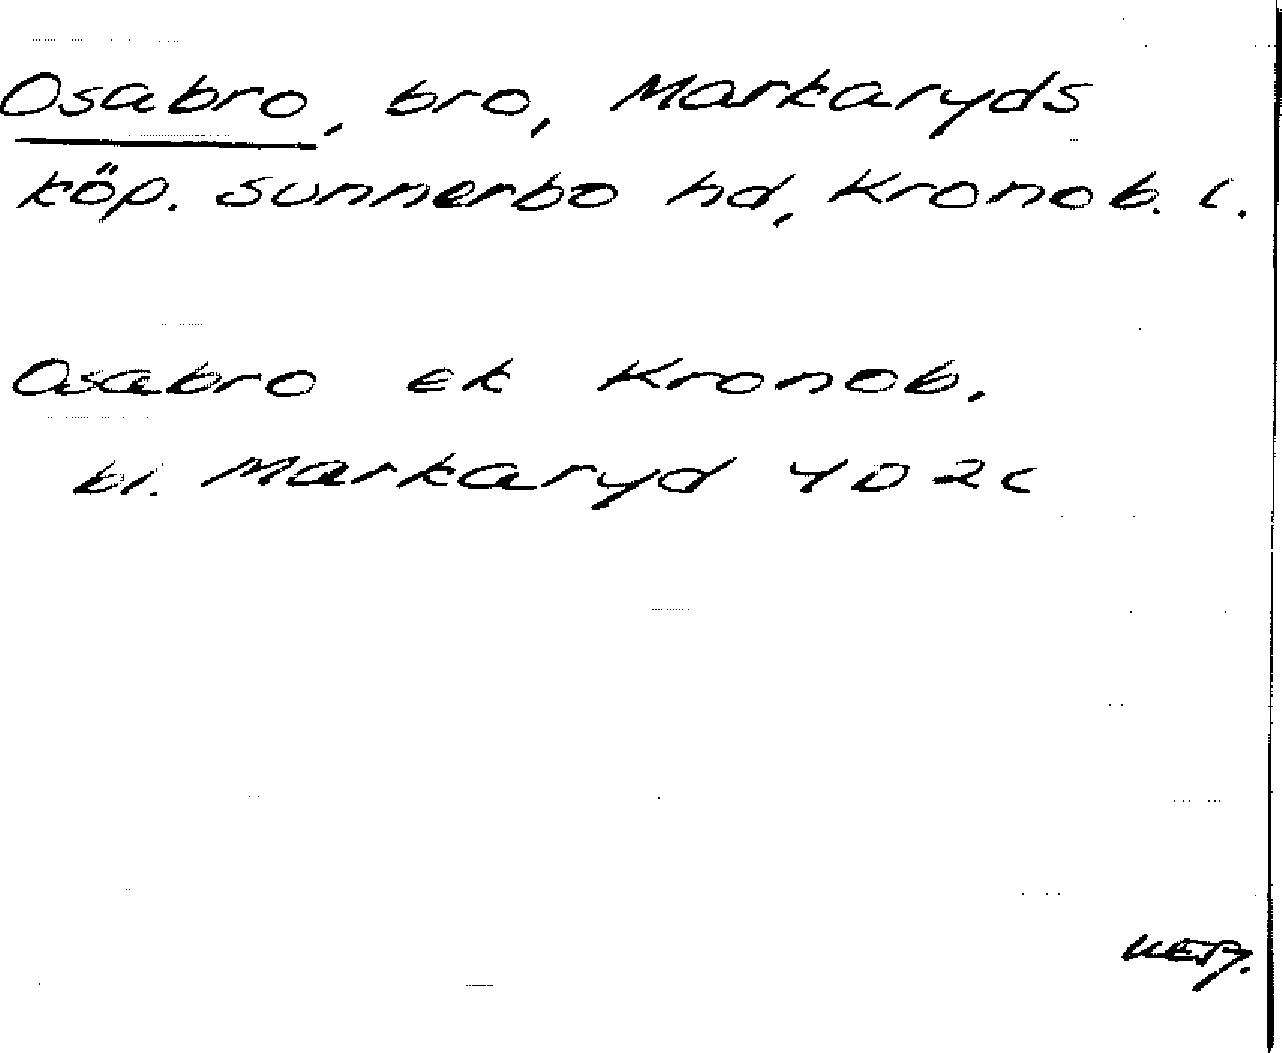 Osabro, bro, Markaryds
köp. Sunnerbo hd, Kronob. l.
Osabro ek Kronob.
bl. Markaryd 4D2c